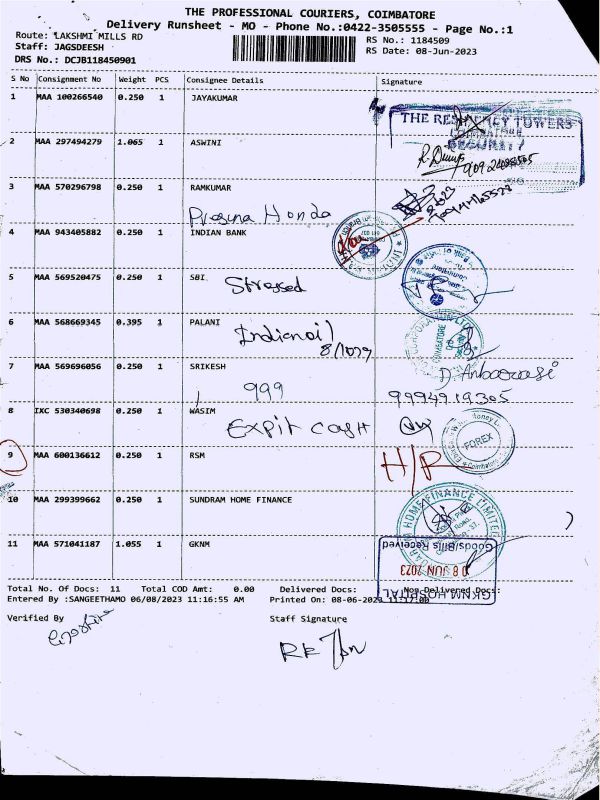 THE PROFESSIONAL COURIERS, COIMBATORE
Delivery Runsheet - MO - Phone No.:0422-3505555 - Page No.:1
Route: LAKSHMI MILLS RD
Staff: JAGSDEESH
DRS No.: DCJB118450901
RS No.: 1184509
RS Date: 08-Jun-2023
S No Consignment No Weight PCS Consignee Details Signature
1 MAA 100266540 0.250 1 JAYAKUMAR
THE RESIDENCY TOWERS
COIMBATORE
SECURITY
2 MAA 297494279 1.065 1 ASWINI
3 MAA 570296798 0.250 1 RAMKUMAR
Honda
4 MAA 943405882 0.250 1 INDIAN BANK
5 MAA 569520475 0.250 1 SBI
Stressed
6 MAA 568669345 0.395 1 PALANI
Indianoil
7 MAA 569696056 0.250 1 SRIKESH
999
D. Anbarasi
9994919305
8 IXC 530340698 0.250 1 WASIM
Expit cash
FOREX
9 MAA 600136612 0.250 1 RSM
H/R
10 MAA 299399662 0.250 1 SUNDRAM HOME FINANCE
HOME FINANCE LIMITED
11 MAA 571041187 1.055 1 GKNM
Goods/Bills Received
08 JUN 2023
GKNM HOSPITAL
Total No. Of Docs: 11 Total COD Amt: 0.00 Delivered Docs: Non-Delivered Docs:
Entered By :SANGEETHAMO 06/08/2023 11:16:55 AM Printed On: 08-06-2023 11:17:00
Verified By
Staff Signature